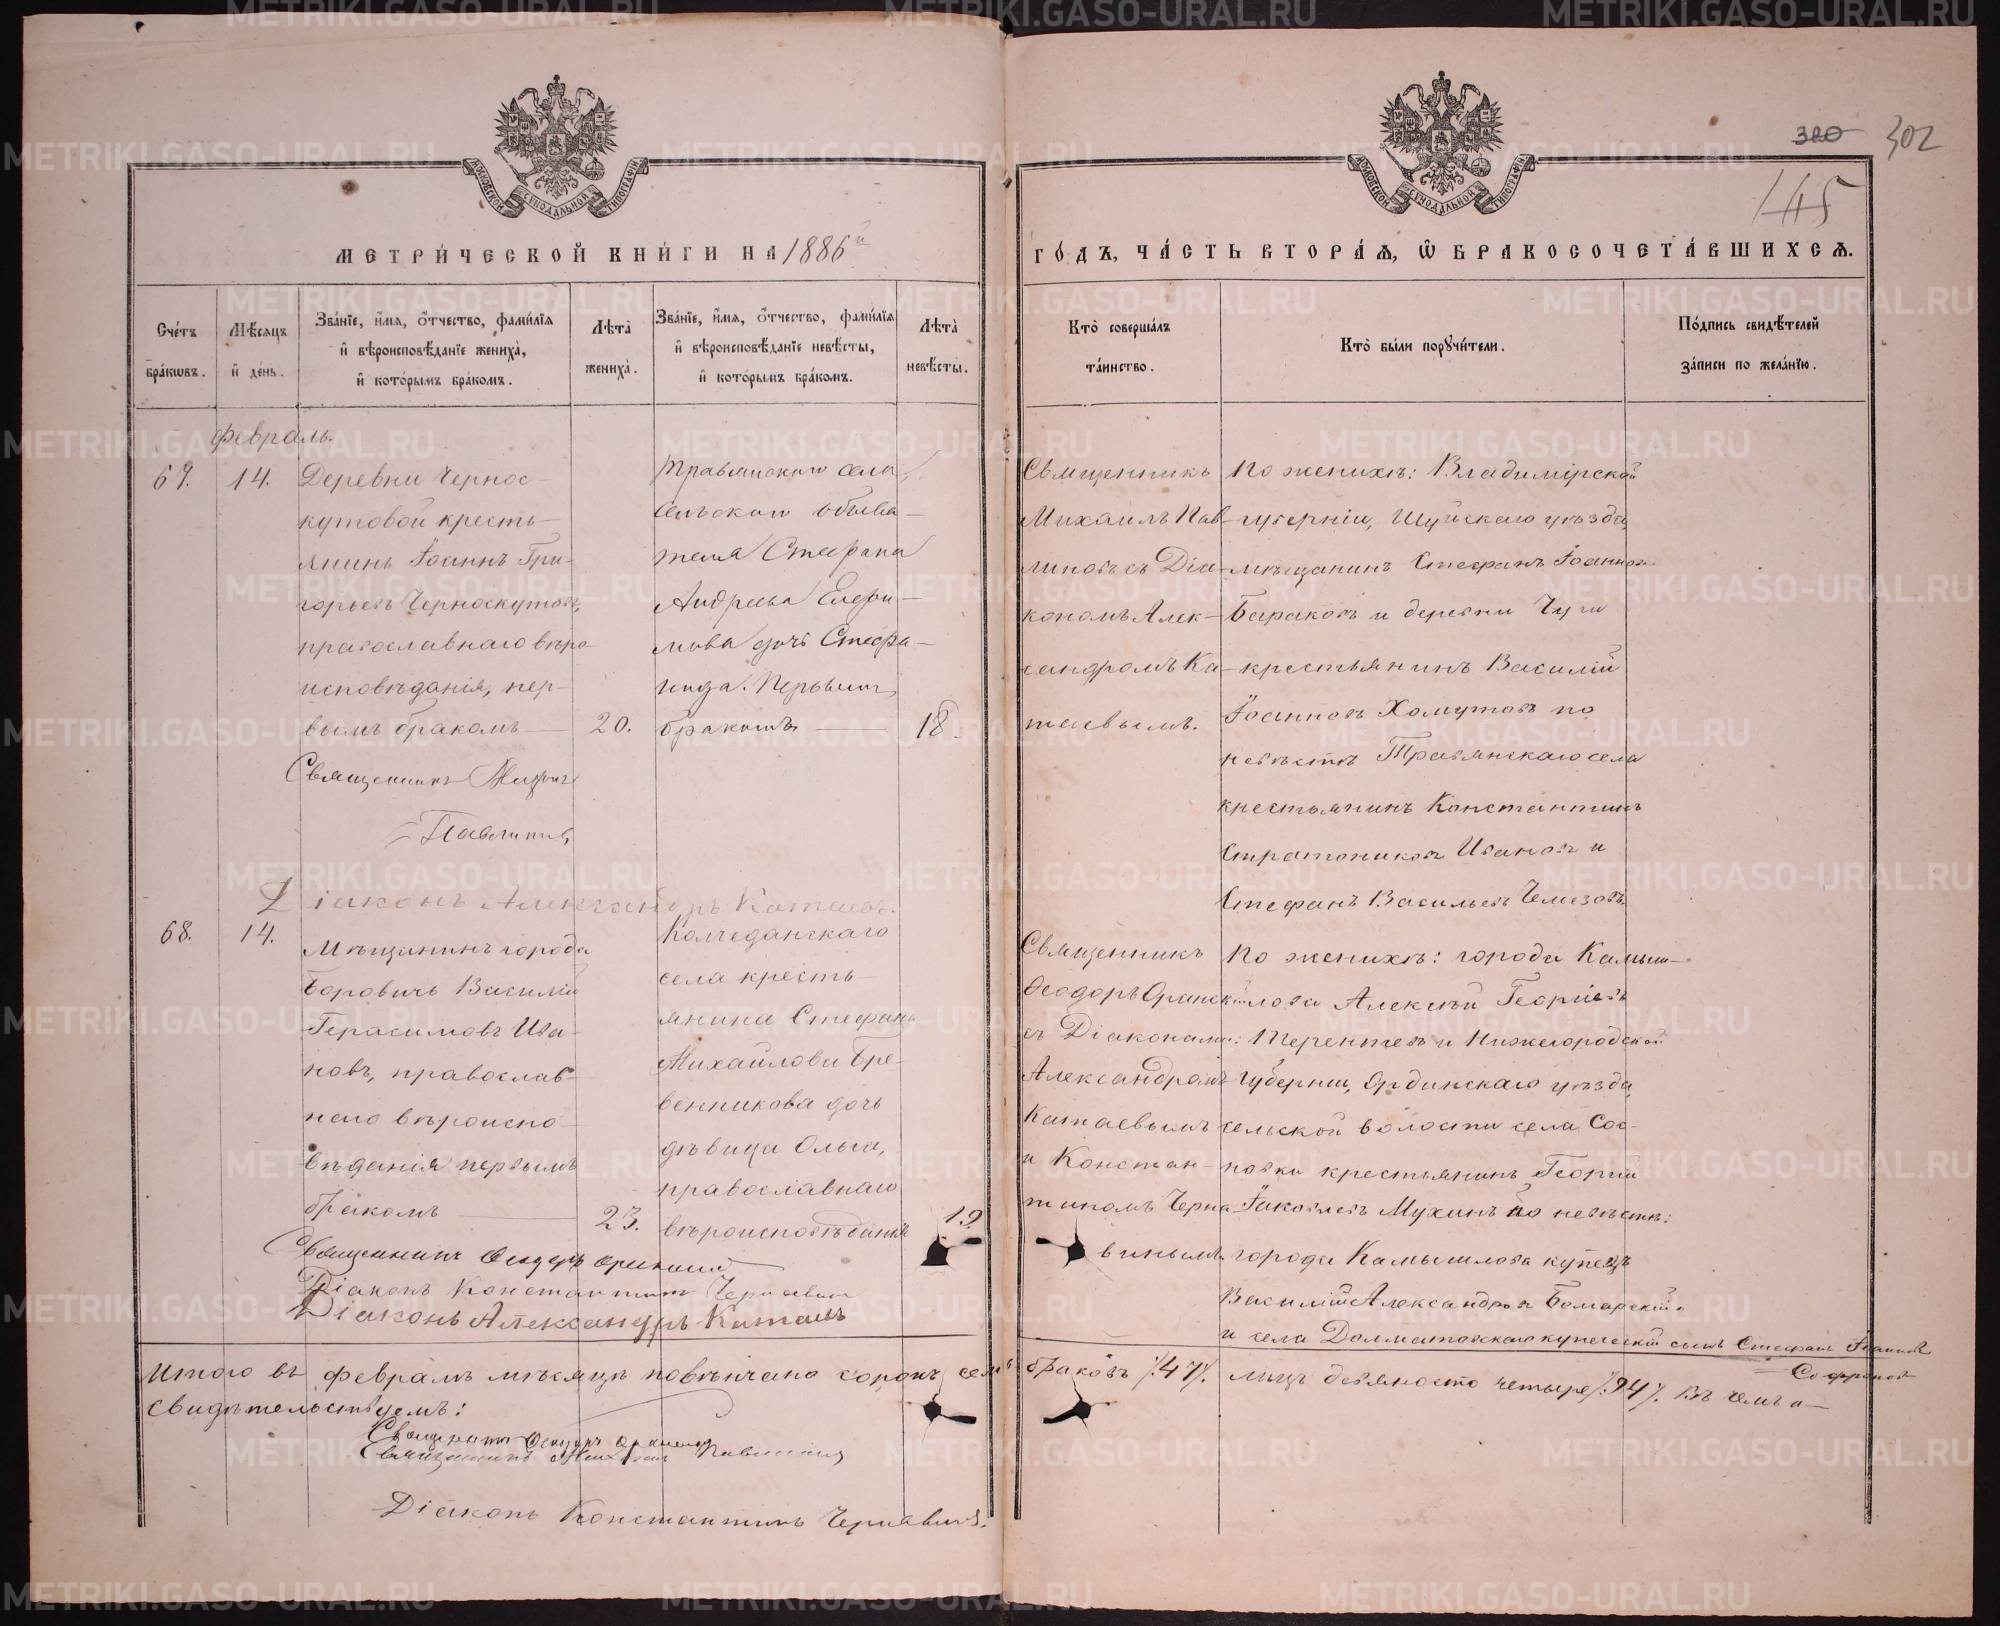 МЕТРИ́ЧЕСКОЙ КНИ́ГИ НА 1886й
ГО́ДЪ, ЧА́СТЬ ВТОРА́Я, Ѡ БРАКОСОЧЕТА́ВШИХСЯ.
320 302
145
МОСКОВСКОЙ СѴНОДАЛЬНОЙ ТИПОГРАФІИ
МОСКОВСКОЙ СѴНОДАЛЬНОЙ ТИПОГРАФІИ
Сче́тъ бра́кѡвъ.
Мѣ́сяцъ и де́нь.
Зва́нїе, и́мя, о́тчество, фами́лїя и вѣроисповѣ́данїе жениха̀, и кото́рымъ бра́комъ.
Лѣта̀ жениха̀.
Зва́нїе, и́мя, о́тчество, фами́лїя и вѣроисповѣ́данїе невѣ́сты, и кото́рымъ бра́комъ.
Лѣта̀ невѣ́сты.
Кто̀ соверша́лъ та́инство.
Кто̀ бы́ли порꙋчи́тели.
По́дпись свидѣ́телей за́писи по жела́нїю.
Февраль.
67.
14.
Деревни Чернос-
кутовой кресть-
янинъ Іоаннъ Гри-
горьевъ Черноскутовъ,
православнаго вѣро-
исповѣданія, пер-
вымъ бракомъ
20.
Травянскаго села,
сельскаго обыва-
теля Стефана
Андреева Елфи-
мова дочь Стефа-
нида. Первымъ
бракомъ
18.
Священникъ
Михаилъ Пав-
линовъ съ Діа-
кономъ Алек-
сандромъ Ка-
таевымъ.
По женихѣ: Владимірской
губерніи, Шуйскаго уѣзда,
мѣщанинъ Стефанъ Іоанновъ
Бараковъ и деревни Чуги
крестьянинъ Василій
Іоанновъ Хомутовъ по
невѣстѣ Травянскаго села
крестьянинъ Константинъ
Стратониковъ Ивановъ и
Стефанъ Васильевъ Чемезовъ.
Священникъ Михаилъ
Павлиновъ
Діаконъ Александръ Катаевъ.
68.
14.
Мѣщанинъ города
Боровичь Василій
Герасимовъ Ива-
новъ, православ-
наго вѣроиспо-
вѣданія первымъ
бракомъ
23.
Колчеданскаго
села кресть-
янина Стефана
Михайлова Бре-
венникова дочь
дѣвица Ольга,
православнаго
вѣроисповѣданія
19
Священникъ
Ѳеодоръ Оранскій
съ Діаконами:
Александромъ
Катаевымъ
и Констан-
тиномъ Черна-
винымъ.
По женихѣ: города Камыш-
лова Алексѣй Георгіевъ
Терентевъ и Нижегородской
Губерніи, Ординскаго уѣзда,
сельской волости села Сос-
новки крестьянинъ Георгій
Іаковлевъ Мухинъ по невѣстѣ:
города Камышлова купецъ
Василій Александровъ Бомарскій
и села Долматовскаго купеческій сынъ Стефанъ Іоанновъ
Софроновъ
Священникъ Ѳеодоръ Оранскій
Діаконъ Константинъ Чернавинъ
Діаконъ Александръ Катаевъ
Итого въ февралѣ мѣсяцѣ повѣнчано сорокъ семь браковъ /47/. лицъ девяносто четыре /94/. Въ чемъ и
свидѣтельствуемъ:
Священникъ Ѳеодоръ Оранскій
Священникъ Михаилъ Павлиновъ
Діаконъ Константинъ Чернавинъ.
METRIKI.GASO-URAL.RU